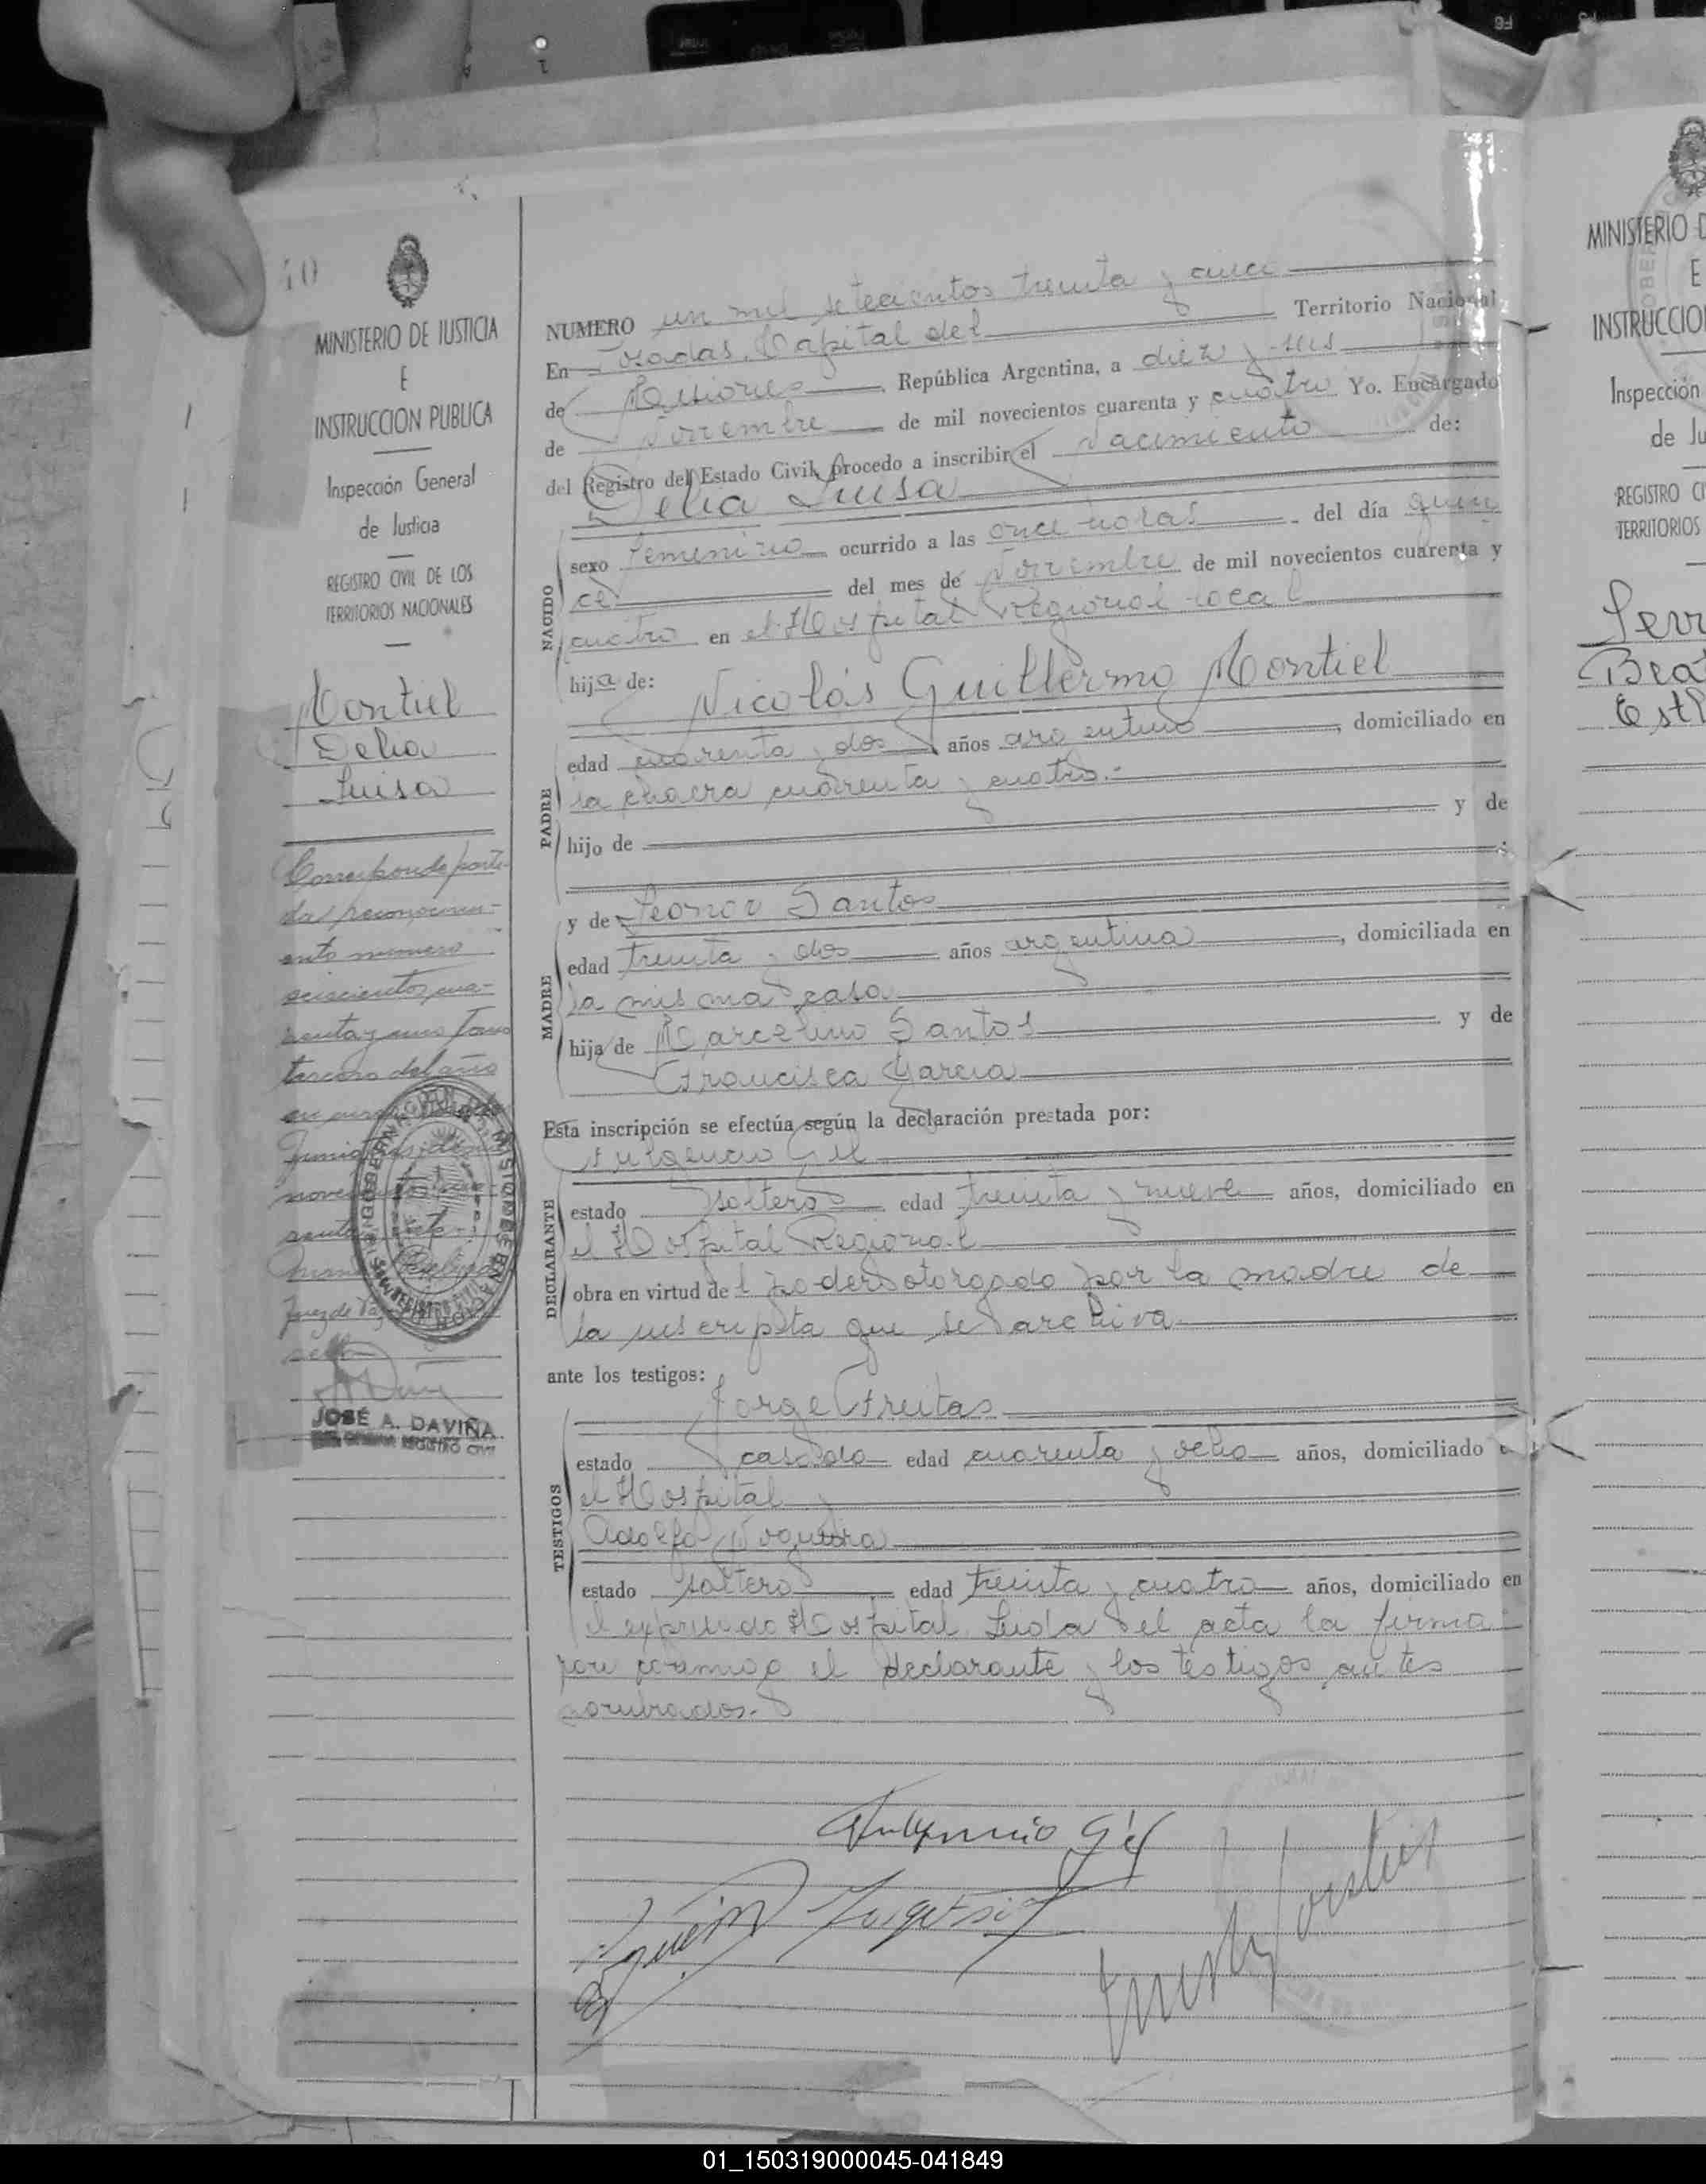 10
MINISTERIO DE JUSTICIA
E
INSTRUCCION PUBLICA
Inspección General
de Justicia
REGISTRO CIVIL DE LOS
TERRITORIOS NACIONALES
Montiel
Delia
Luisa
Corresponde parti-
da reconocimi-
ento numero
seiscientos cua-
renta y uno Tomo
tercero del año
en curso
Junio
Juez de Paz
JOSÉ A. DAVIÑA
REGISTRO CIVIL
NUMERO un mil setecientos treinta y cinco
En Posadas, Capital del Territorio Nacional
de Misiones, República Argentina, a diez y seis
de Noviembre de mil novecientos cuarenta y cuatro Yo. Encargado
del Registro del Estado Civil, procedo a inscribir el Nacimiento de:
Delia Luisa
NACIDO
sexo femenino ocurrido a las once horas del día quin
ce del mes de Noviembre de mil novecientos cuarenta y
cuatro en el Hospital Regional local
hija de: Nicolás Guillermo Montiel
PADRE
edad cuarenta y dos años argentino, domiciliado en
la chacra cuarenta y cuatro.-
hijo de y de
y de Leonor Santos
MADRE
edad treinta y dos años argentina, domiciliada en
la misma casa
hija de Marcelino Santos y de
Francisca Garcia
Esta inscripción se efectúa según la declaración prestada por:
Fulgencio Gil
DECLARANTE
estado soltero edad treinta y nueve años, domiciliado en
el Hospital Regional
obra en virtud del poder otorgado por la madre de
la inscripta que se archiva
ante los testigos:
Jorge Freitas
TESTIGOS
estado casado edad cuarenta y ocho años, domiciliado
el Hospital y
Adolfo Noguera
estado soltero edad treinta y cuatro años, domiciliado en
el expresado Hospital. Leida el acta la firma
con conmigo el declarante y los testigos antes
nombrados.-
Fulgencio Gil
MINISTERIO D
E
INSTRUCCIO
Inspección
de Ju
REGISTRO CI
TERRITORIOS
Bea
Est
01_150319000045-041849